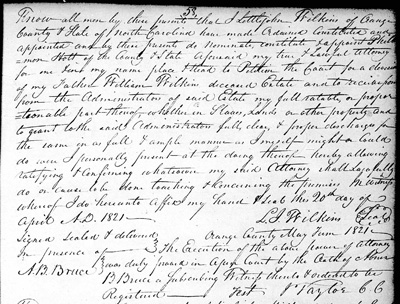 53
Know all men by these presents that I Littlejohn Wilkins of Orange
County & State of North Carolina have made Ordained Constituted and
appointed and by these presents do Nominate, constitute & appoint
Holt of the County & State Aforesaid my true & Lawful Attorney
for me & in my name place & stead to Petition the Court for a division
of my Father William Wilkins deceased Estate and to recieve
from the Administrators of said Estate my full ratable or propor
tionable part thereof whether in Slaves, Lands or other property And
to grant to the said Administrators full, clear, & proper discharges for
the same in as full & ample manner as I myself might or Could
do were I personally present at the doing thereof hereby allowing
ratifying & Confirming whatsoever my said Attorney shall Lawfully
do or cause to be done touching & Concerning the premises In witness
whereof I do hereunto Affix my hand & Seal this 20th day of
April A.D. 1821
L. J. Wilkins Seal
Signed Sealed & delivered Orange County May Term 1821
In presence of The Execution of the above power of Attorney
A. B. Bruce was duly proved in Open Court by the Oath of Abner
B Bruce a Subscribing Witness thereto & ordered to be
Registered Test J Taylor C C